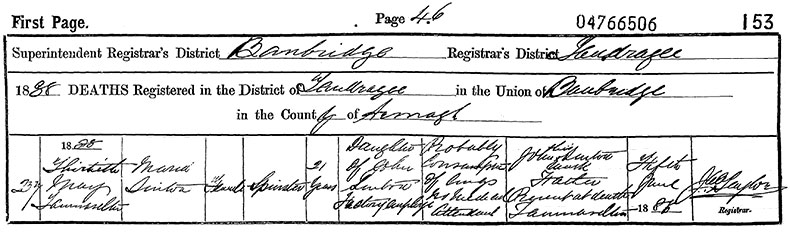 First Page.
Page 46
04766506
153
Superintendent Registrar's District Banbridge Registrar's District Tandragee
1888 DEATHS Registered in the District of Tandragee in the Union of Banbridge
in the County of Armagh
1888
Thirtieth
May
Maria
Female
Spinster
21
Years
Daughter
of John
Factory employe
Probably
Consumption
of lungs
No medical
Attendant
his
John
mark
Present at death
Fifth
June
1888
Registrar.